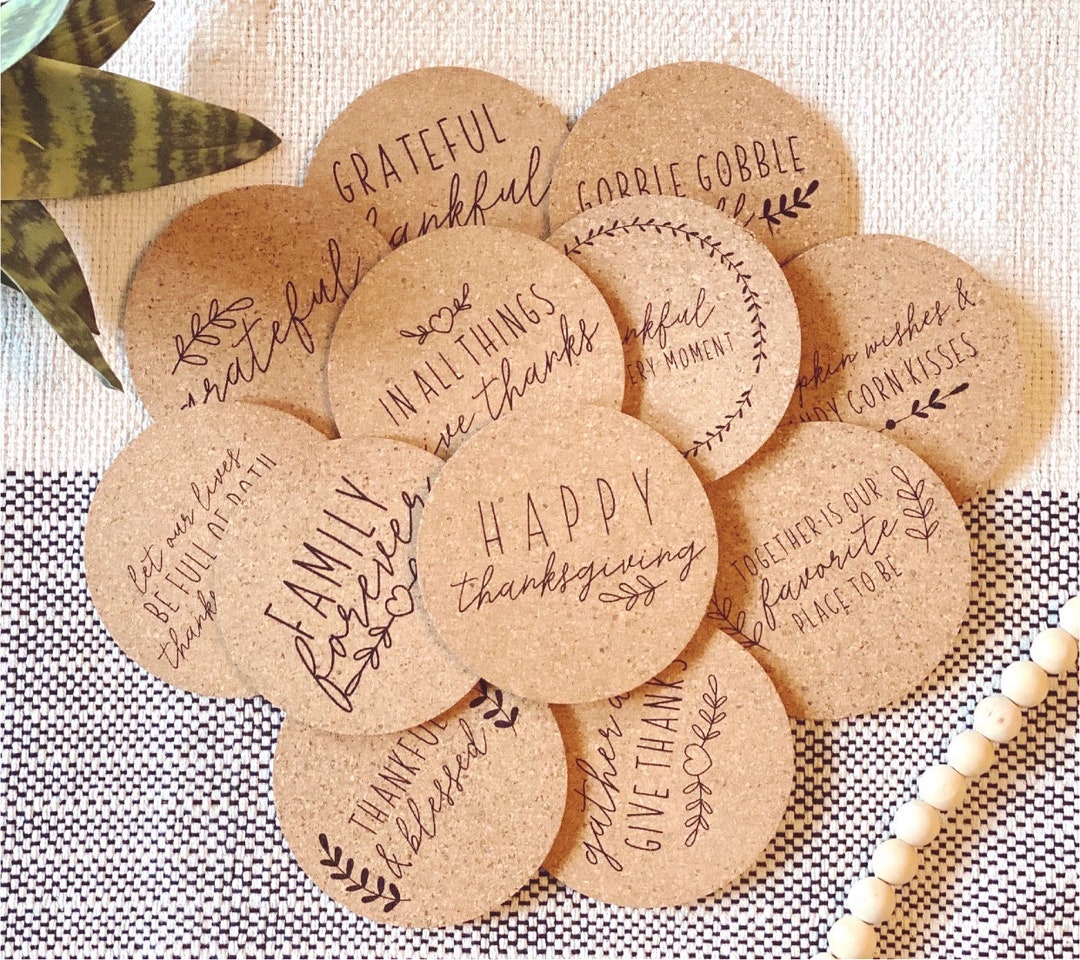 GRATEFUL
& thankful
GOBBLE GOBBLE
grateful
IN ALL THINGS
give thanks
thankful
EVERY MOMENT
pumpkin wishes &
CANDY CORN KISSES
let our lives
BE FULL OF BOTH
thanks
FAMILY
forever
HAPPY
thanksgiving
TOGETHER IS OUR
favorite
PLACE TO BE
THANKFUL
& blessed
gather
GIVE THANKS